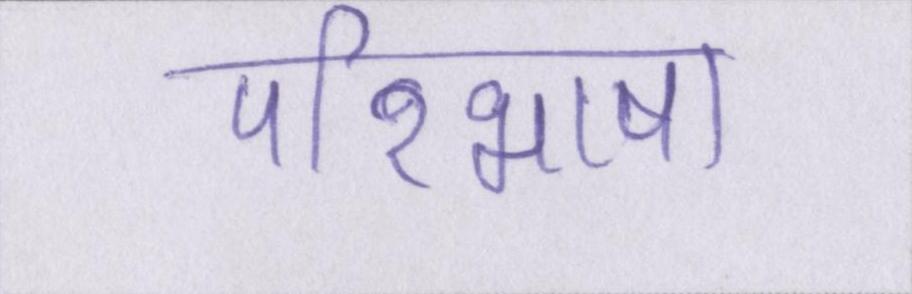 परिभाषा